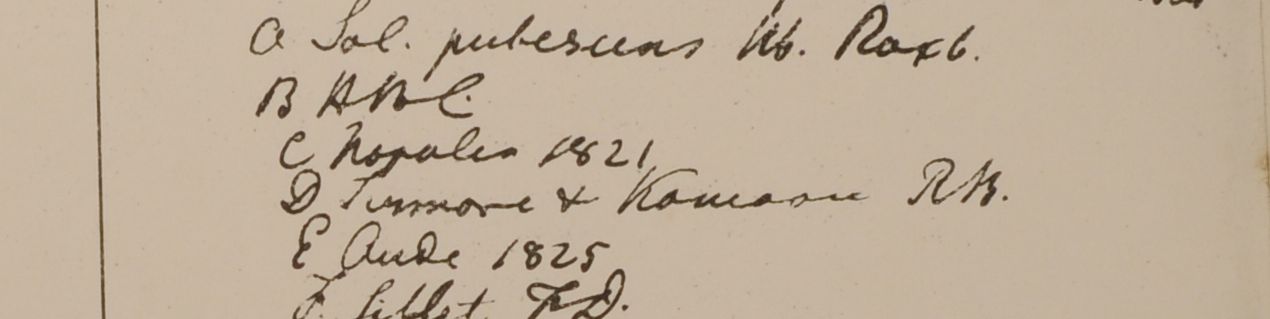 a Sol. pubescens Hb. Roxb.
B HBC.
C Napalia 1821
D Sirmore & Kamaon RB.
E Oude 1825
F. Sillet FD.